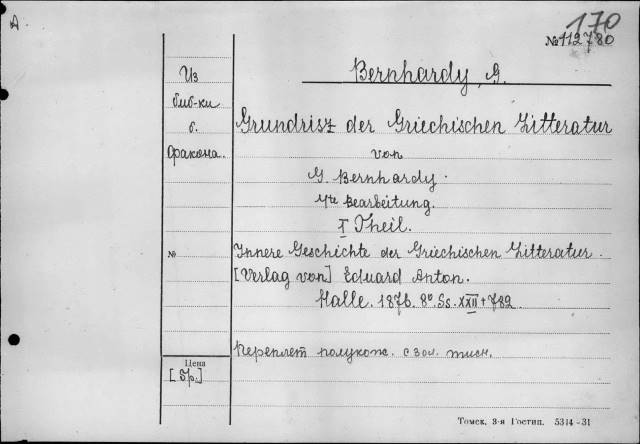 A
170
№112780
Bernhardy, G.
Из
биб-ки
б.
Фракона.
Grundrisz der Griechischen Litteratur
von
G. Bernhardy.
4te Bearbeitung.
I Theil.
№
Innere Geschichte der Griechischen Litteratur.
[Verlag von] Eduard Anton.
Halle. 1876. 8° Ss. XXII + 782.
Переплет полукож. с зол. тисн.
Цена
[5р.]
Томск, 3-я Гостип. 5314-31